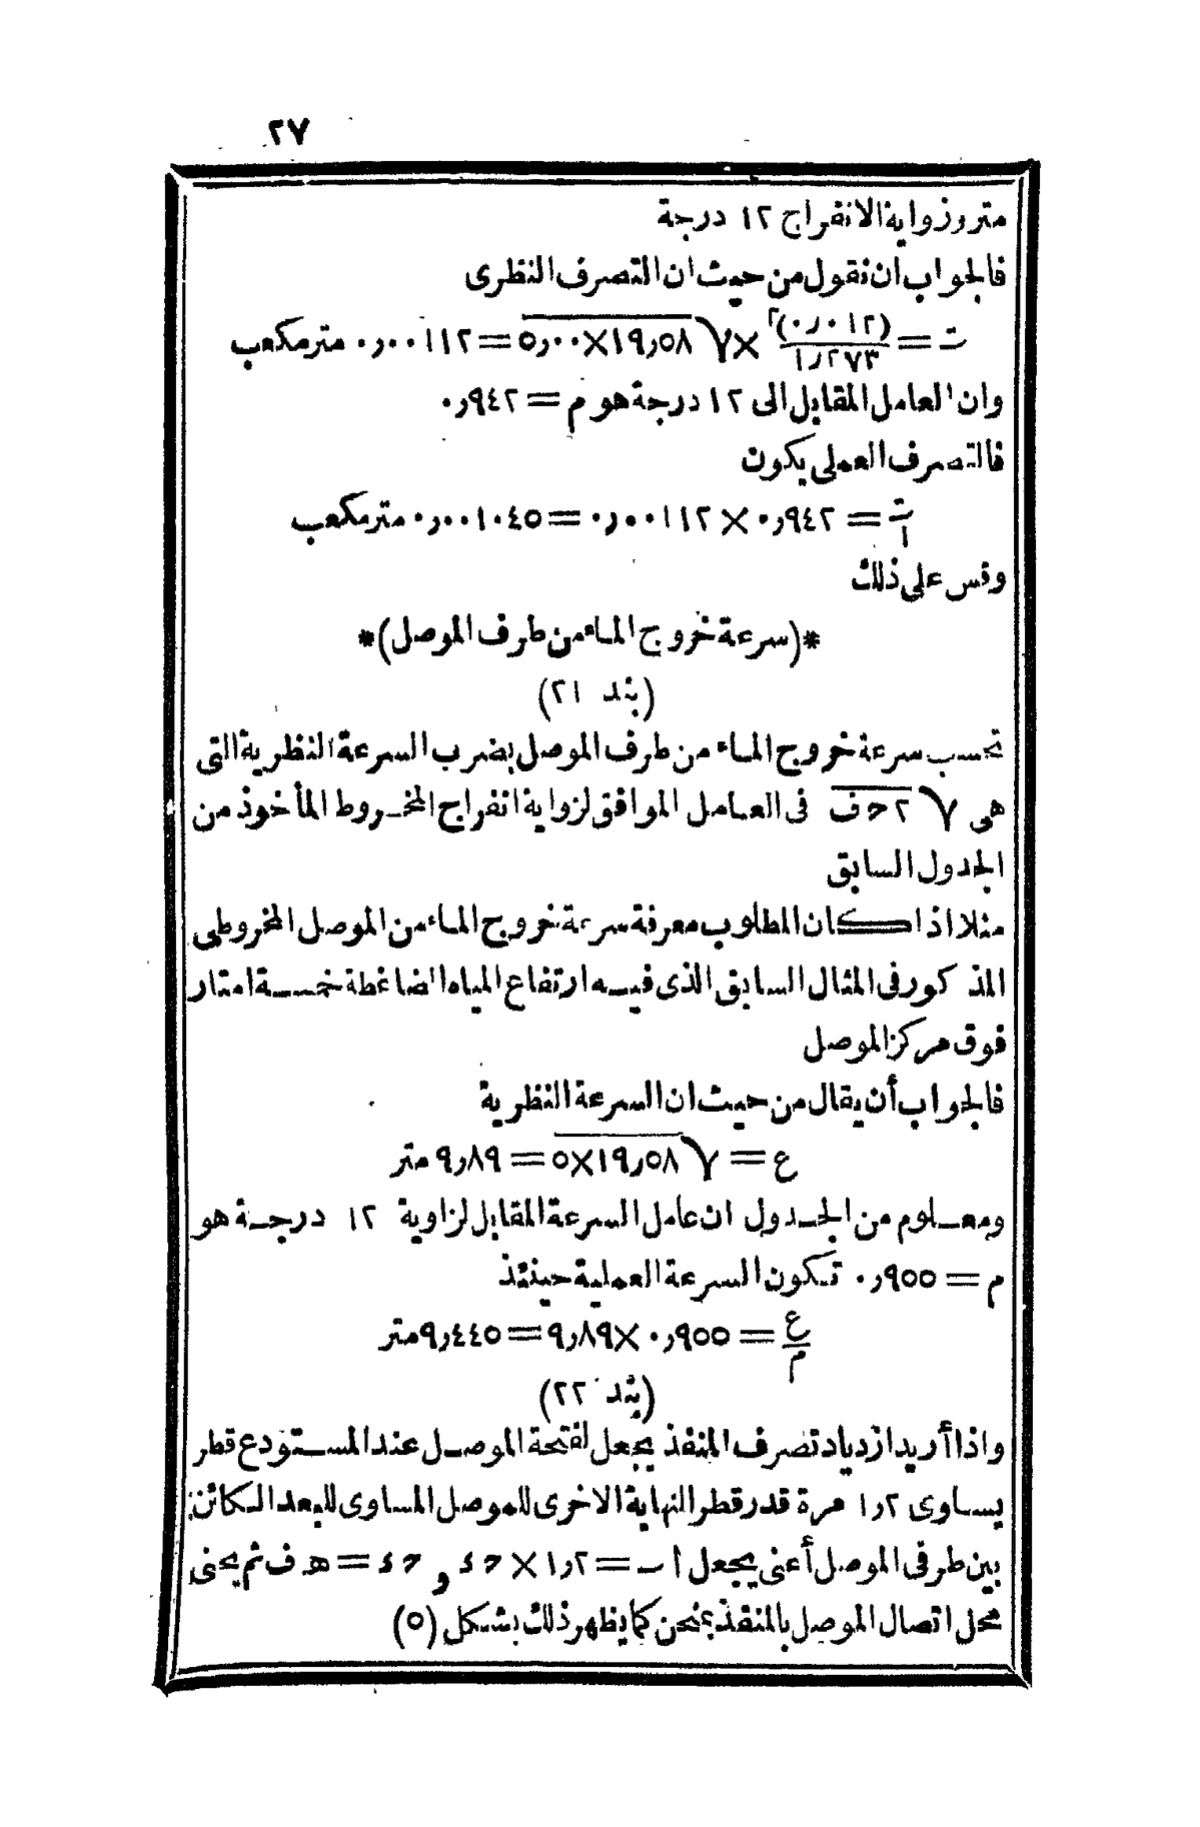 ٢٧
متر وزواية الانفراج ١٢ درجة
فالجواب أن نقول من حيث ان التصرف النظرى
ت = (٠٫٠١٢)٢ / ١٫٢٧٣ × √ ١٩٫٥٨×٥٫٠٠ = ٠٫٠٠١١٢ متر مكعب
وان العامل المقابل الى ١٢ درجة هو م = ٠٫٩٤٢
فالتصرف العملى يكون
ت / ا = ٠٫٩٤٢ × ٠٫٠٠١١٢ = ٠٫٠٠١٠٤٥ متر مكعب
وقس على ذلك
*(سرعة خروج الماء من طرف الموصل)*
(بند ٢١)
تحسب سرعة خروج الماء من طرف الموصل بضرب السرعة النظرية التى
هى √ ٢حف فى العامل الموافق لزواية انفراج المخروط المأخوذ من
الجدول السابق
مثلا اذا كان المطلوب معرفة سرعة خروج الماء من الموصل المخروطى
المذكور فى المثال السابق الذى فيه ارتفاع المياه الضاغطة خمسة امتار
فوق مركز الموصل
فالجواب أن يقال من حيث ان السرعة النظرية
ع = √ ١٩٫٥٨×٥ = ٩٫٨٩ متر
ومعلوم من الجدول ان عامل السرعة المقابل لزاوية ١٢ درجة هو
م = ٠٫٩٥٥ تكون السرعة العملية حينئذ
ع / م = ٠٫٩٥٥ × ٩٫٨٩ = ٩٫٤٤٥ متر
(بند ٢٢)
واذا أريد ازدياد تصرف المنفذ يجعل لفتحة الموصل عند المستودع قطر
يساوى ١٫٢ مرة قدر قطر النهاية الاخرى للموصل المساوى للبعد الكائن
بين طرفى الموصل أعنى يجعل ا ب = ١٫٢ × حـ د و حـ د = هـ ف ثم يحنى
محل اتصال الموصل بالمنفذ بمنحن كما يظهر ذلك بشكل (٥)